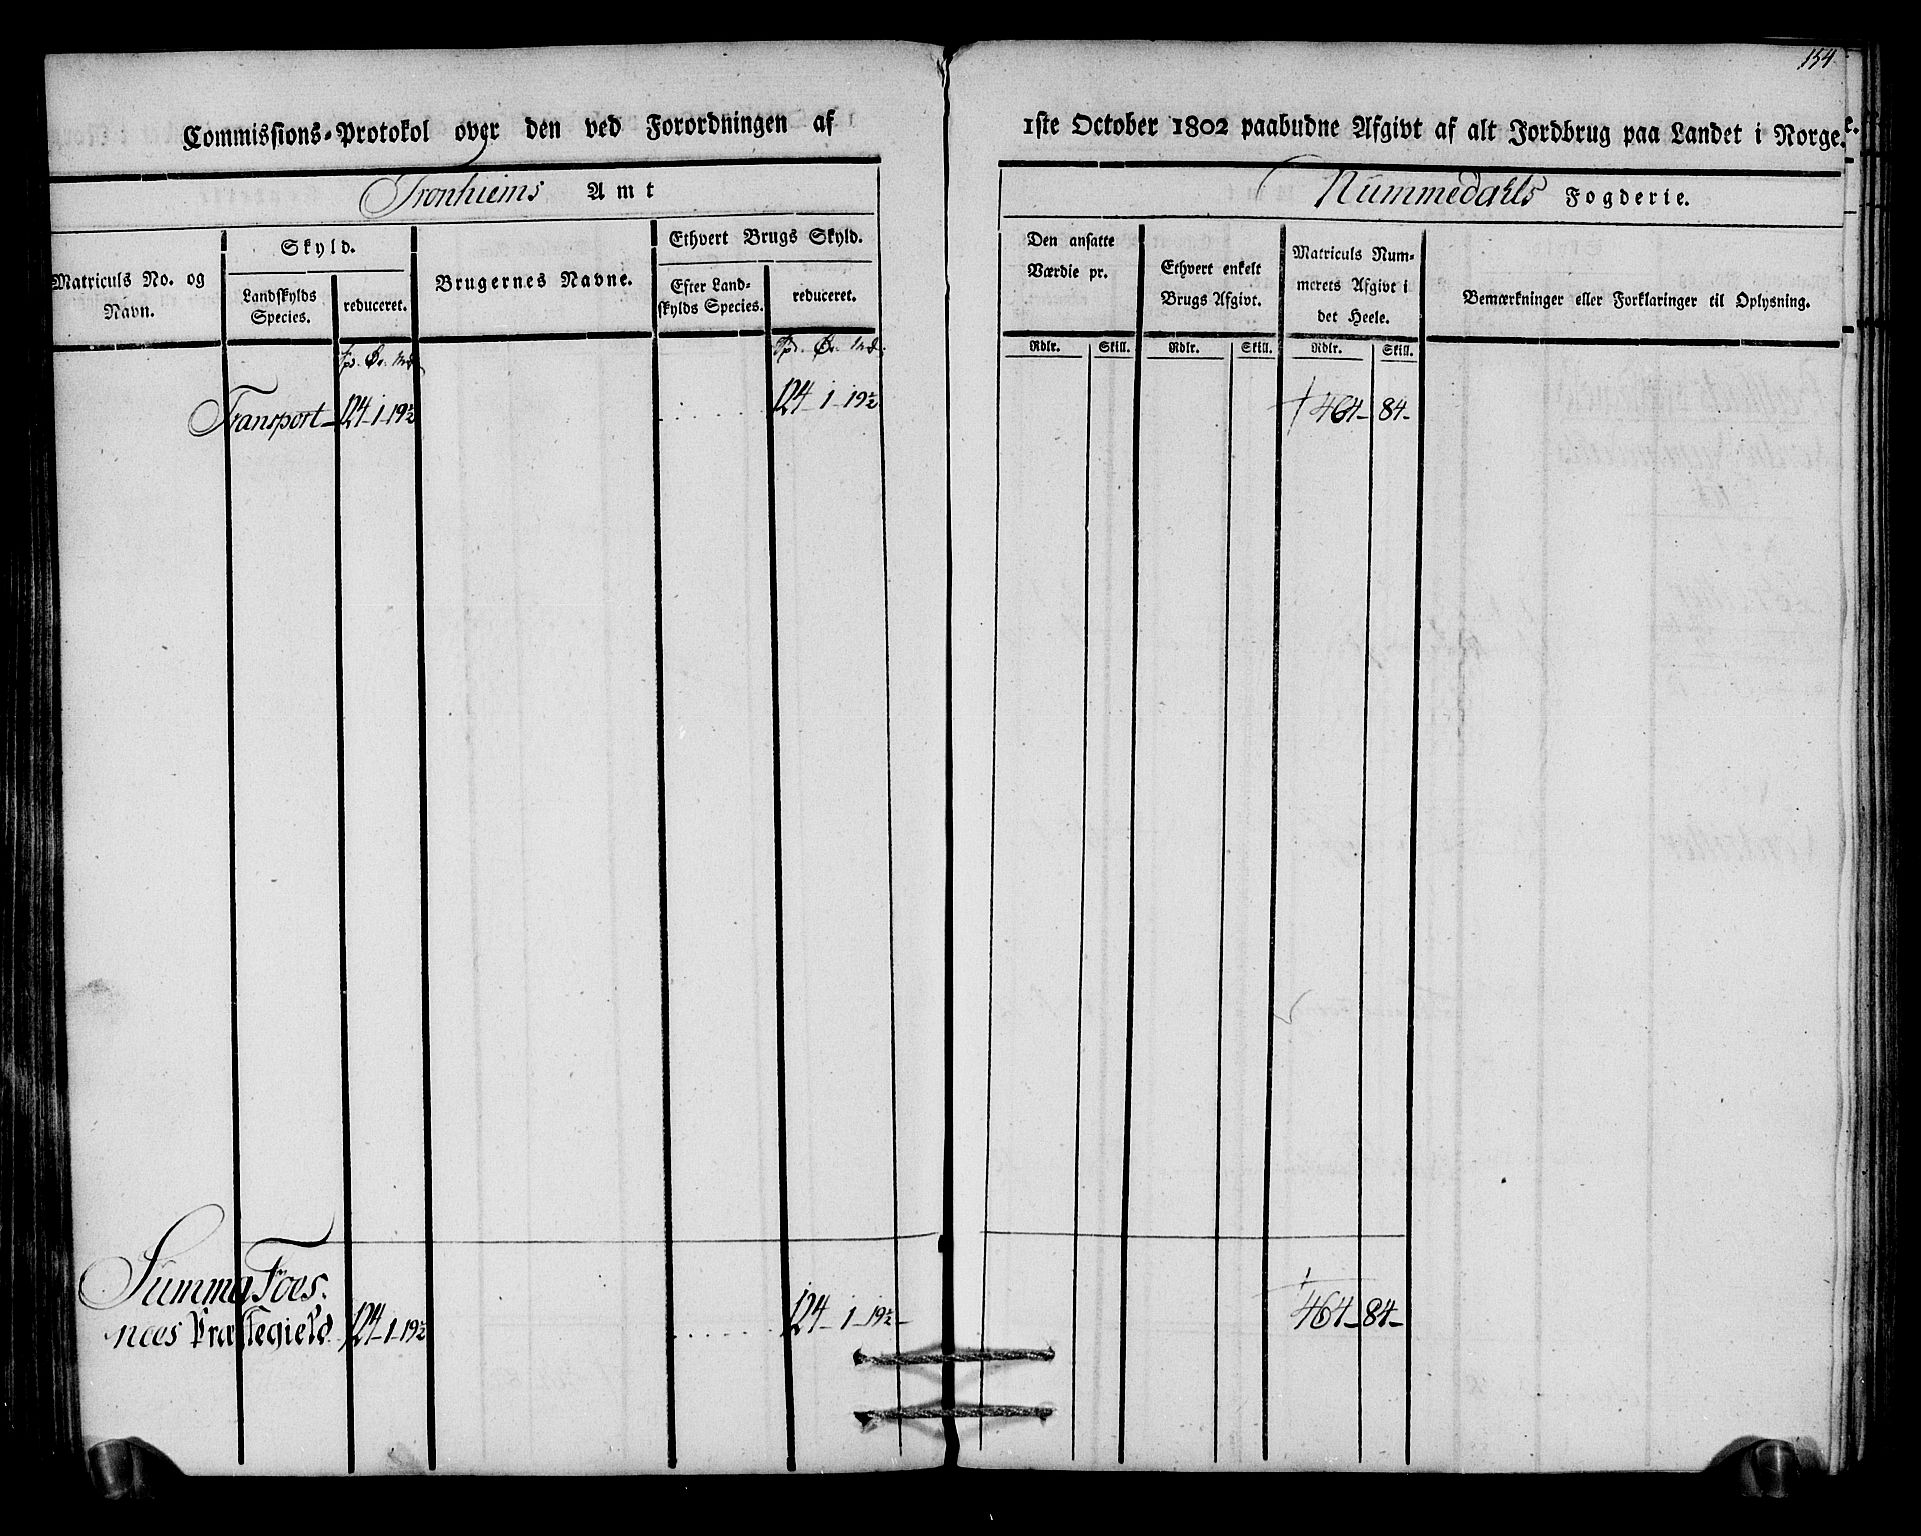 154
Commissions-Protokol over den ved Forordningen af
1ste October 1802 paabudne Afgivt af alt Jordbrug paa Landet i Norge.
Tronhiems Amt
Nummedahls Fogderie.
Matriculs No. og
Navn.
Skyld.
Landskylds
Species.
reduceret.
Brugernes Navne.
Ethvert Brugs Skyld.
Efter Land-
skylds Species.
reduceret.
Den ansatte
Værdie pr.
Ethvert enkelt
Brugs Afgivt.
Matriculs Num-
merets Afgivt i
det Heele.
Bemærkninger eller Forklaringer til Oplysning.
Rdlr. Skill. Rdlr. Skill. Rdlr. Skill.
Transport 124-1-19½ 124-1-19½ 464-84-
Summa Foes.
næs Præstegield 124-1-19½ 124-1-19½- 464-84-